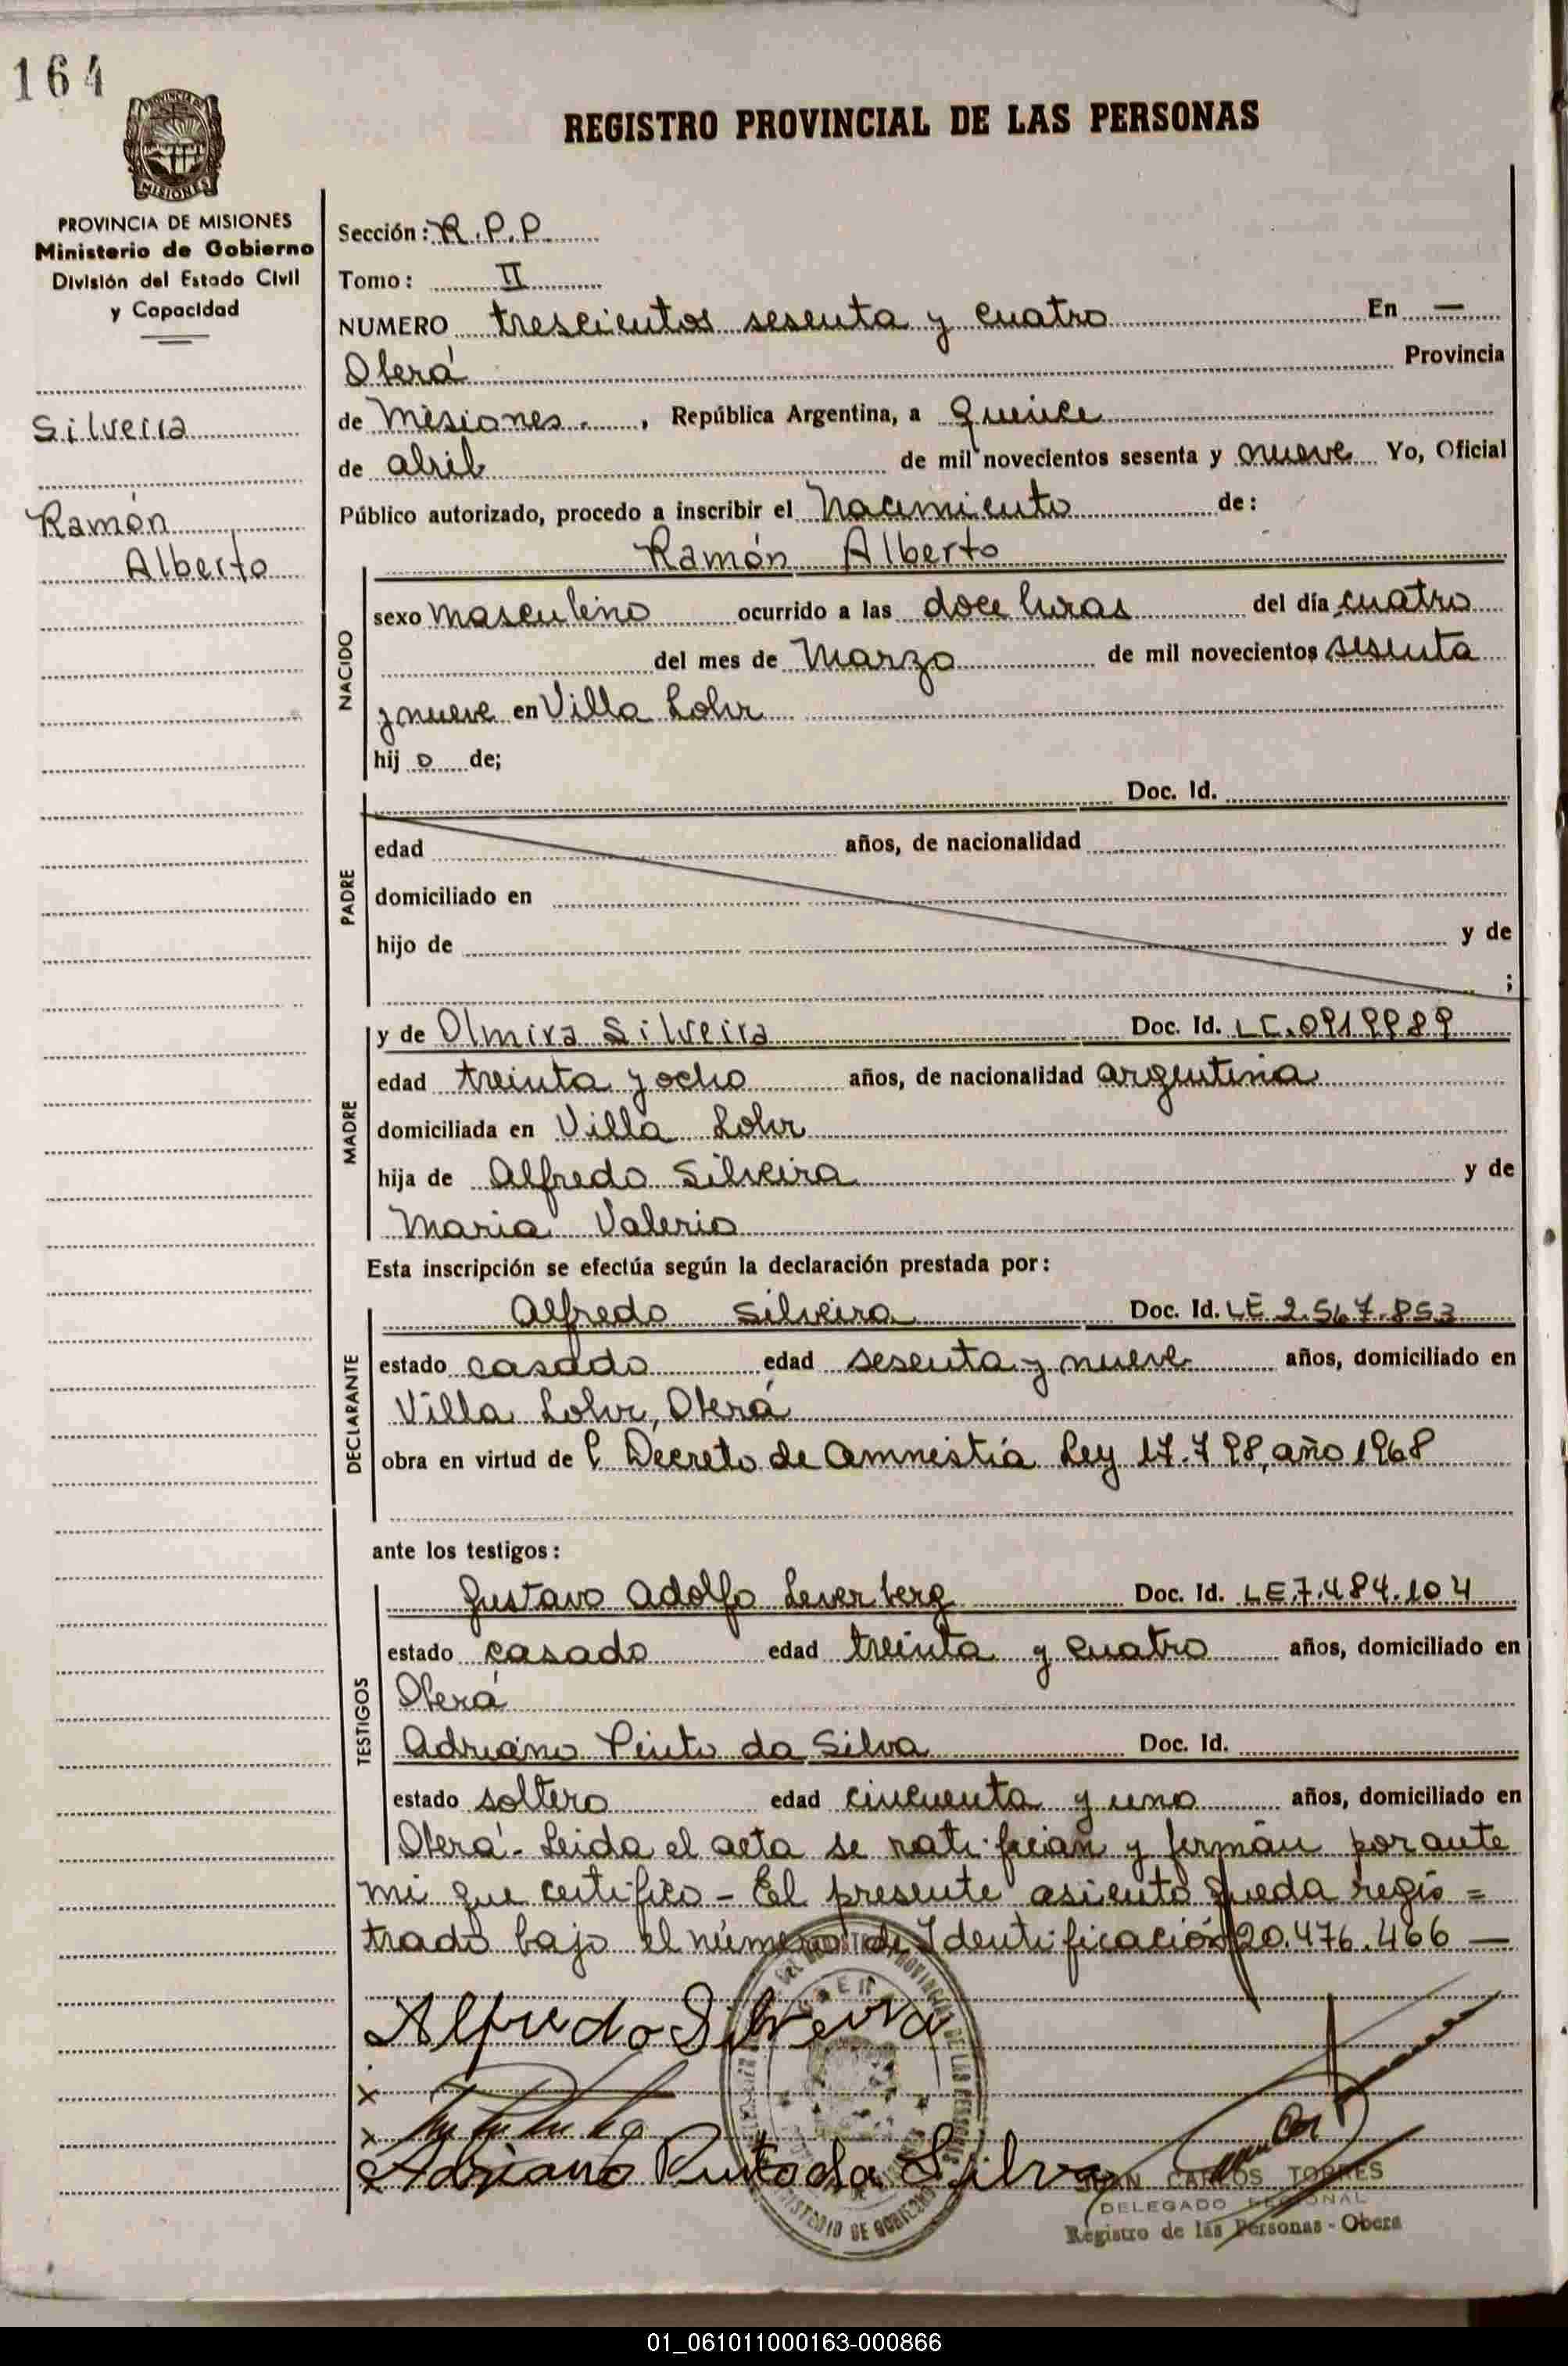 164
PROVINCIA DE MISIONES
Ministerio de Gobierno
División del Estado Civil
y Capacidad
Silveira
Ramón
Alberto
REGISTRO PROVINCIAL DE LAS PERSONAS
Sección: R.P.P.
Tomo: II
NUMERO trescientos sesenta y cuatro En —
Oberá Provincia
de Misiones, República Argentina, a quince
de abril de mil novecientos sesenta y nueve Yo, Oficial
Público autorizado, procedo a inscribir el Nacimiento de:
Ramón Alberto
NACIDO
sexo masculino ocurrido a las doce horas del día cuatro
del mes de Marzo de mil novecientos sesenta
y nueve en Villa Lohr
hij o de;
PADRE
Doc. Id.
edad años, de nacionalidad
domiciliado en
hijo de y de
;
MADRE
y de Olmira Silveira Doc. Id. LC.0919989
edad treinta y ocho años, de nacionalidad argentina
domiciliada en Villa Lohr
hija de Alfredo Silveira y de
Maria Valerio
Esta inscripción se efectúa según la declaración prestada por:
DECLARANTE
Alfredo Silveira Doc. Id. LE 2.567.853
estado casado edad sesenta y nueve años, domiciliado en
Villa Lohr, Oberá
obra en virtud de l Decreto de Amnistía Ley 17.798, año 1968
ante los testigos:
TESTIGOS
Gustavo Adolfo Leverberg Doc. Id. LE 7.484.104
estado casado edad treinta y cuatro años, domiciliado en
Oberá
Adriano Pinto da Silva Doc. Id.
estado soltero edad cincuenta y uno años, domiciliado en
Oberá - Leida el acta se ratifican y firman por ante
mi que certifico - El presente asiento queda regis =
trado bajo el número de Identificación 20.476.466 —
Alfredo Silveira
x
x
x Adriano Pinto da Silva
JUAN CARLOS TORRES
DELEGADO REGIONAL
Registro de las Personas - Obera
01_061011000163-000866